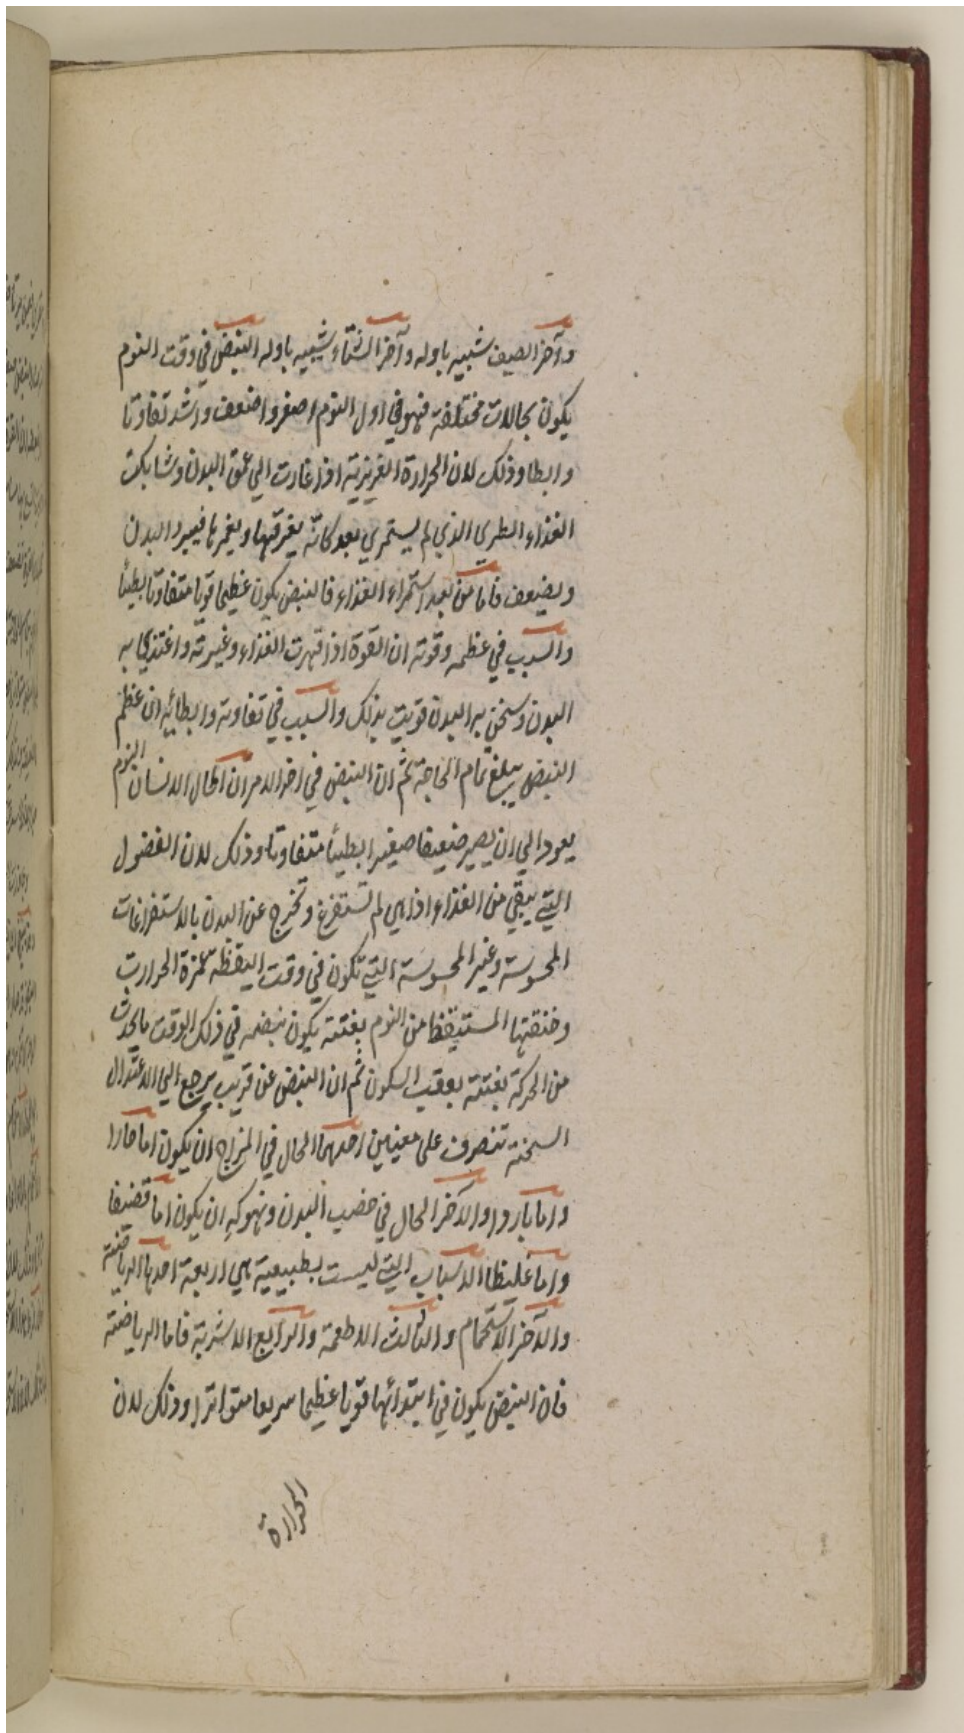 وآخر الصيف شبيه باوله وآخر الشتاء شبيه باوله النبض في وقت النوم
يكون بحالات مختلفة فهو في اول النوم اصغر واضعف واشد تفاوتا
وابطا وذلك لان الحرارة الغريزية اذا غارت الي عمق البدن وشابكت
الغذاء الطري الذي لم يستمري بعد كانّه يغرقها ويغمرها فيبرد البدن
ويضعف فاما من بعد استمراء الغذاء فالنبض يكون عظيما قويا متفاوتا بطيئا
والسبب في عظمه وقوته ان القوة اذا قهرت الغذاء وغيرته واغتذي به
البدن وسخن به البدن قويت بذلك والسبب في تفاوته وابطائه ان عظم
النبض يبلغ تمام الحاجة ثم ان النبض في اخر الامر ان اطال الانسان النوم
يعود الي ان يصير ضعيفا صغيرا بطيئا متفاوتا وذلك لان الفضول
التي يبقي من الغذاء اذا هي لم تستفرغ وتخرج عن البدن بالاستفراغات
المحسوسة وغير المحسوسة التي تكون في وقت اليقظة غمزة الحرارت
وخنقتها المستيقظ من النوم بغتته يكون نبضه في ذلك الوقت مايحدث
من الحركة بغتته بعقيب السكون ثم ان النبض عن قريب يرجع الي الاعتدال
السخنة تنصرف علي معنيين احدهما الحال في المزاج ان يكون اما حارا
واما باردا والآخر الحال في خصب البدن ونهوكه ان يكون اما قضيفا
واما غليظا الاسباب التي ليست بطبيعية هي اربعة احدها الرياضتة
والآخر الاستحمام والثالث الاطعمة والرابع الاشربة فاما الرياضتة
فان النبض يكون في ابتدائها قويا عظيما سريعا متواترا وذلك لان
الحرارة